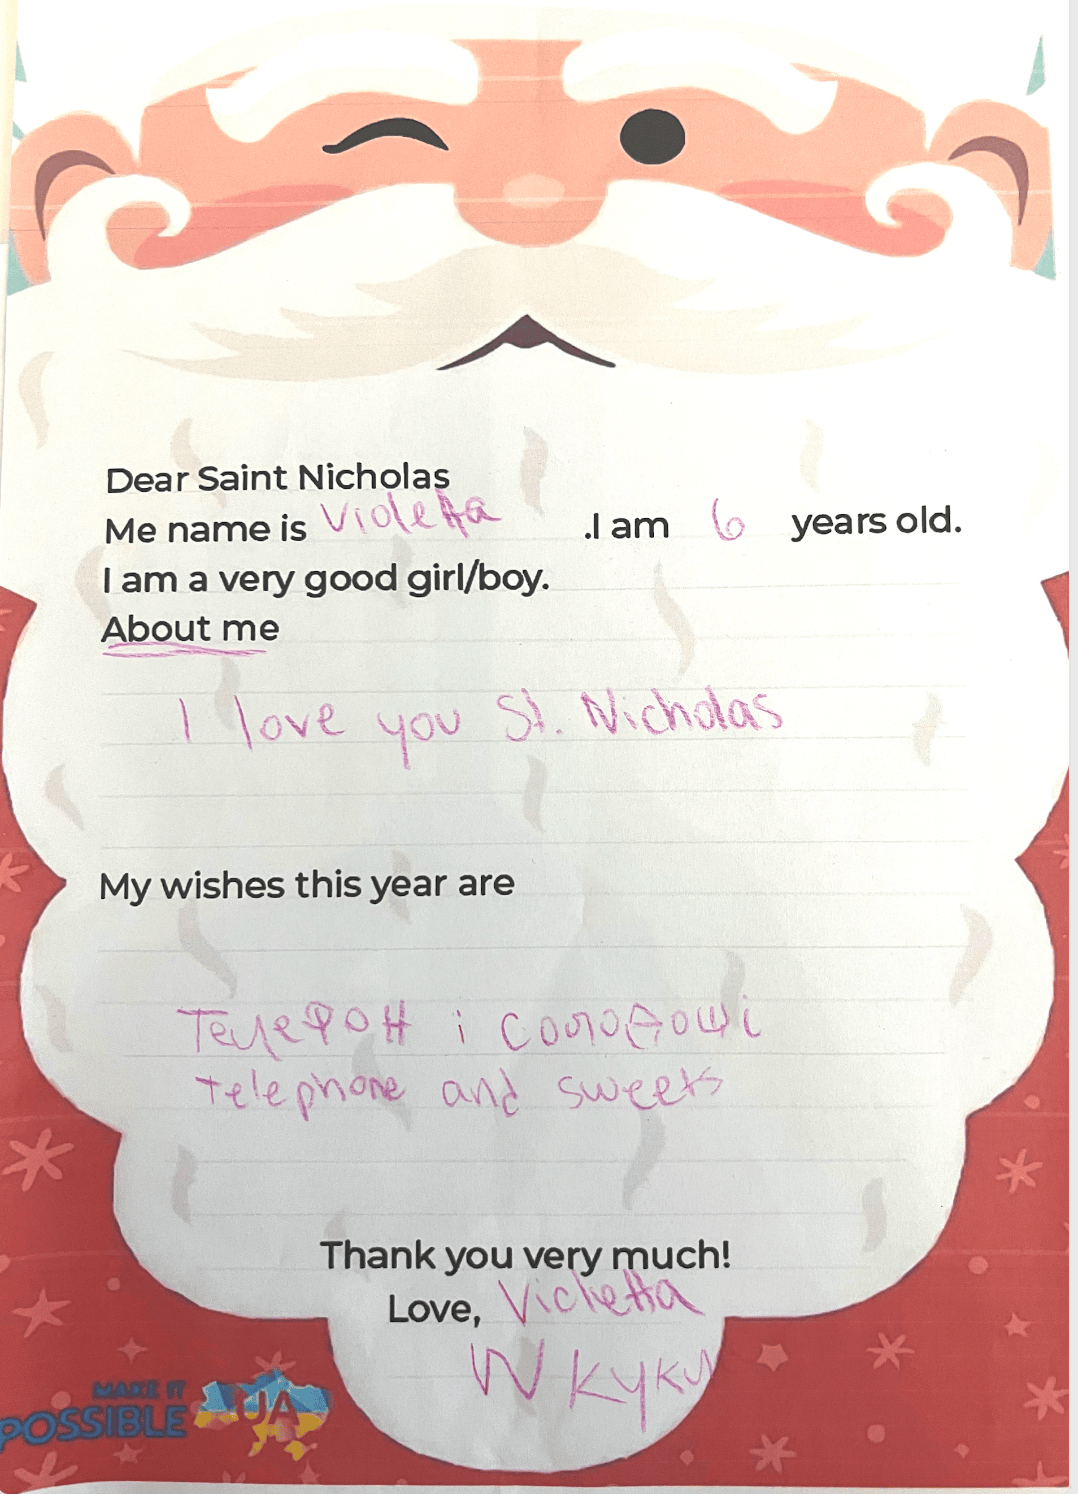 Dear Saint Nicholas
Me name is Violetta .I am 6 years old.
I am a very good girl/boy.
About me
I love you St. Nicholas
My wishes this year are
Телефон і солодощі
telephone and sweets
Thank you very much!
Love, Violetta
MAKE IT
POSSIBLE UA